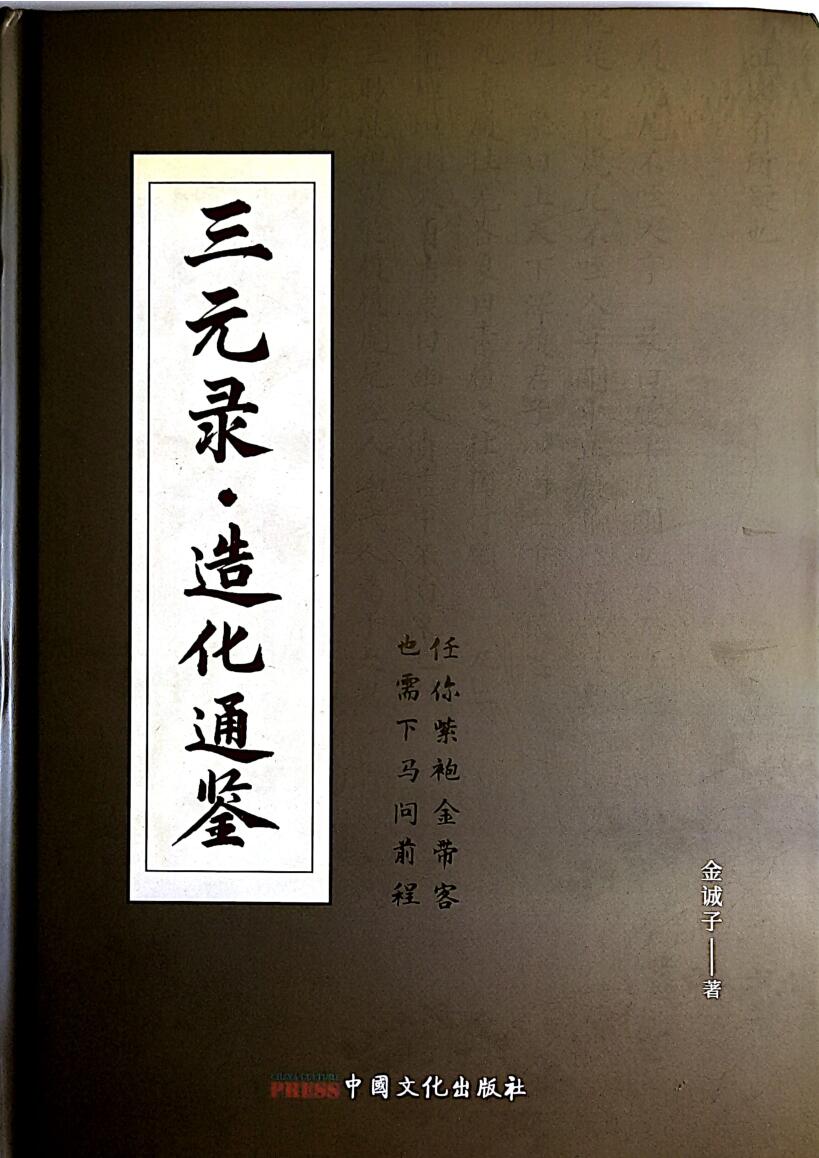 三元录·造化通鉴
任你紫袍金带客
也需下马问前程
金诚子——著
CHINA CULTURE
PRESS
中國文化出版社